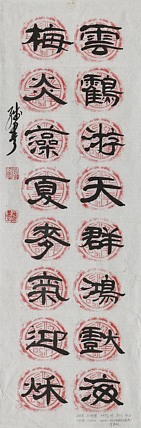 雲鶴游天群鴻戲海
梅炎藻夏麥氣迎秋